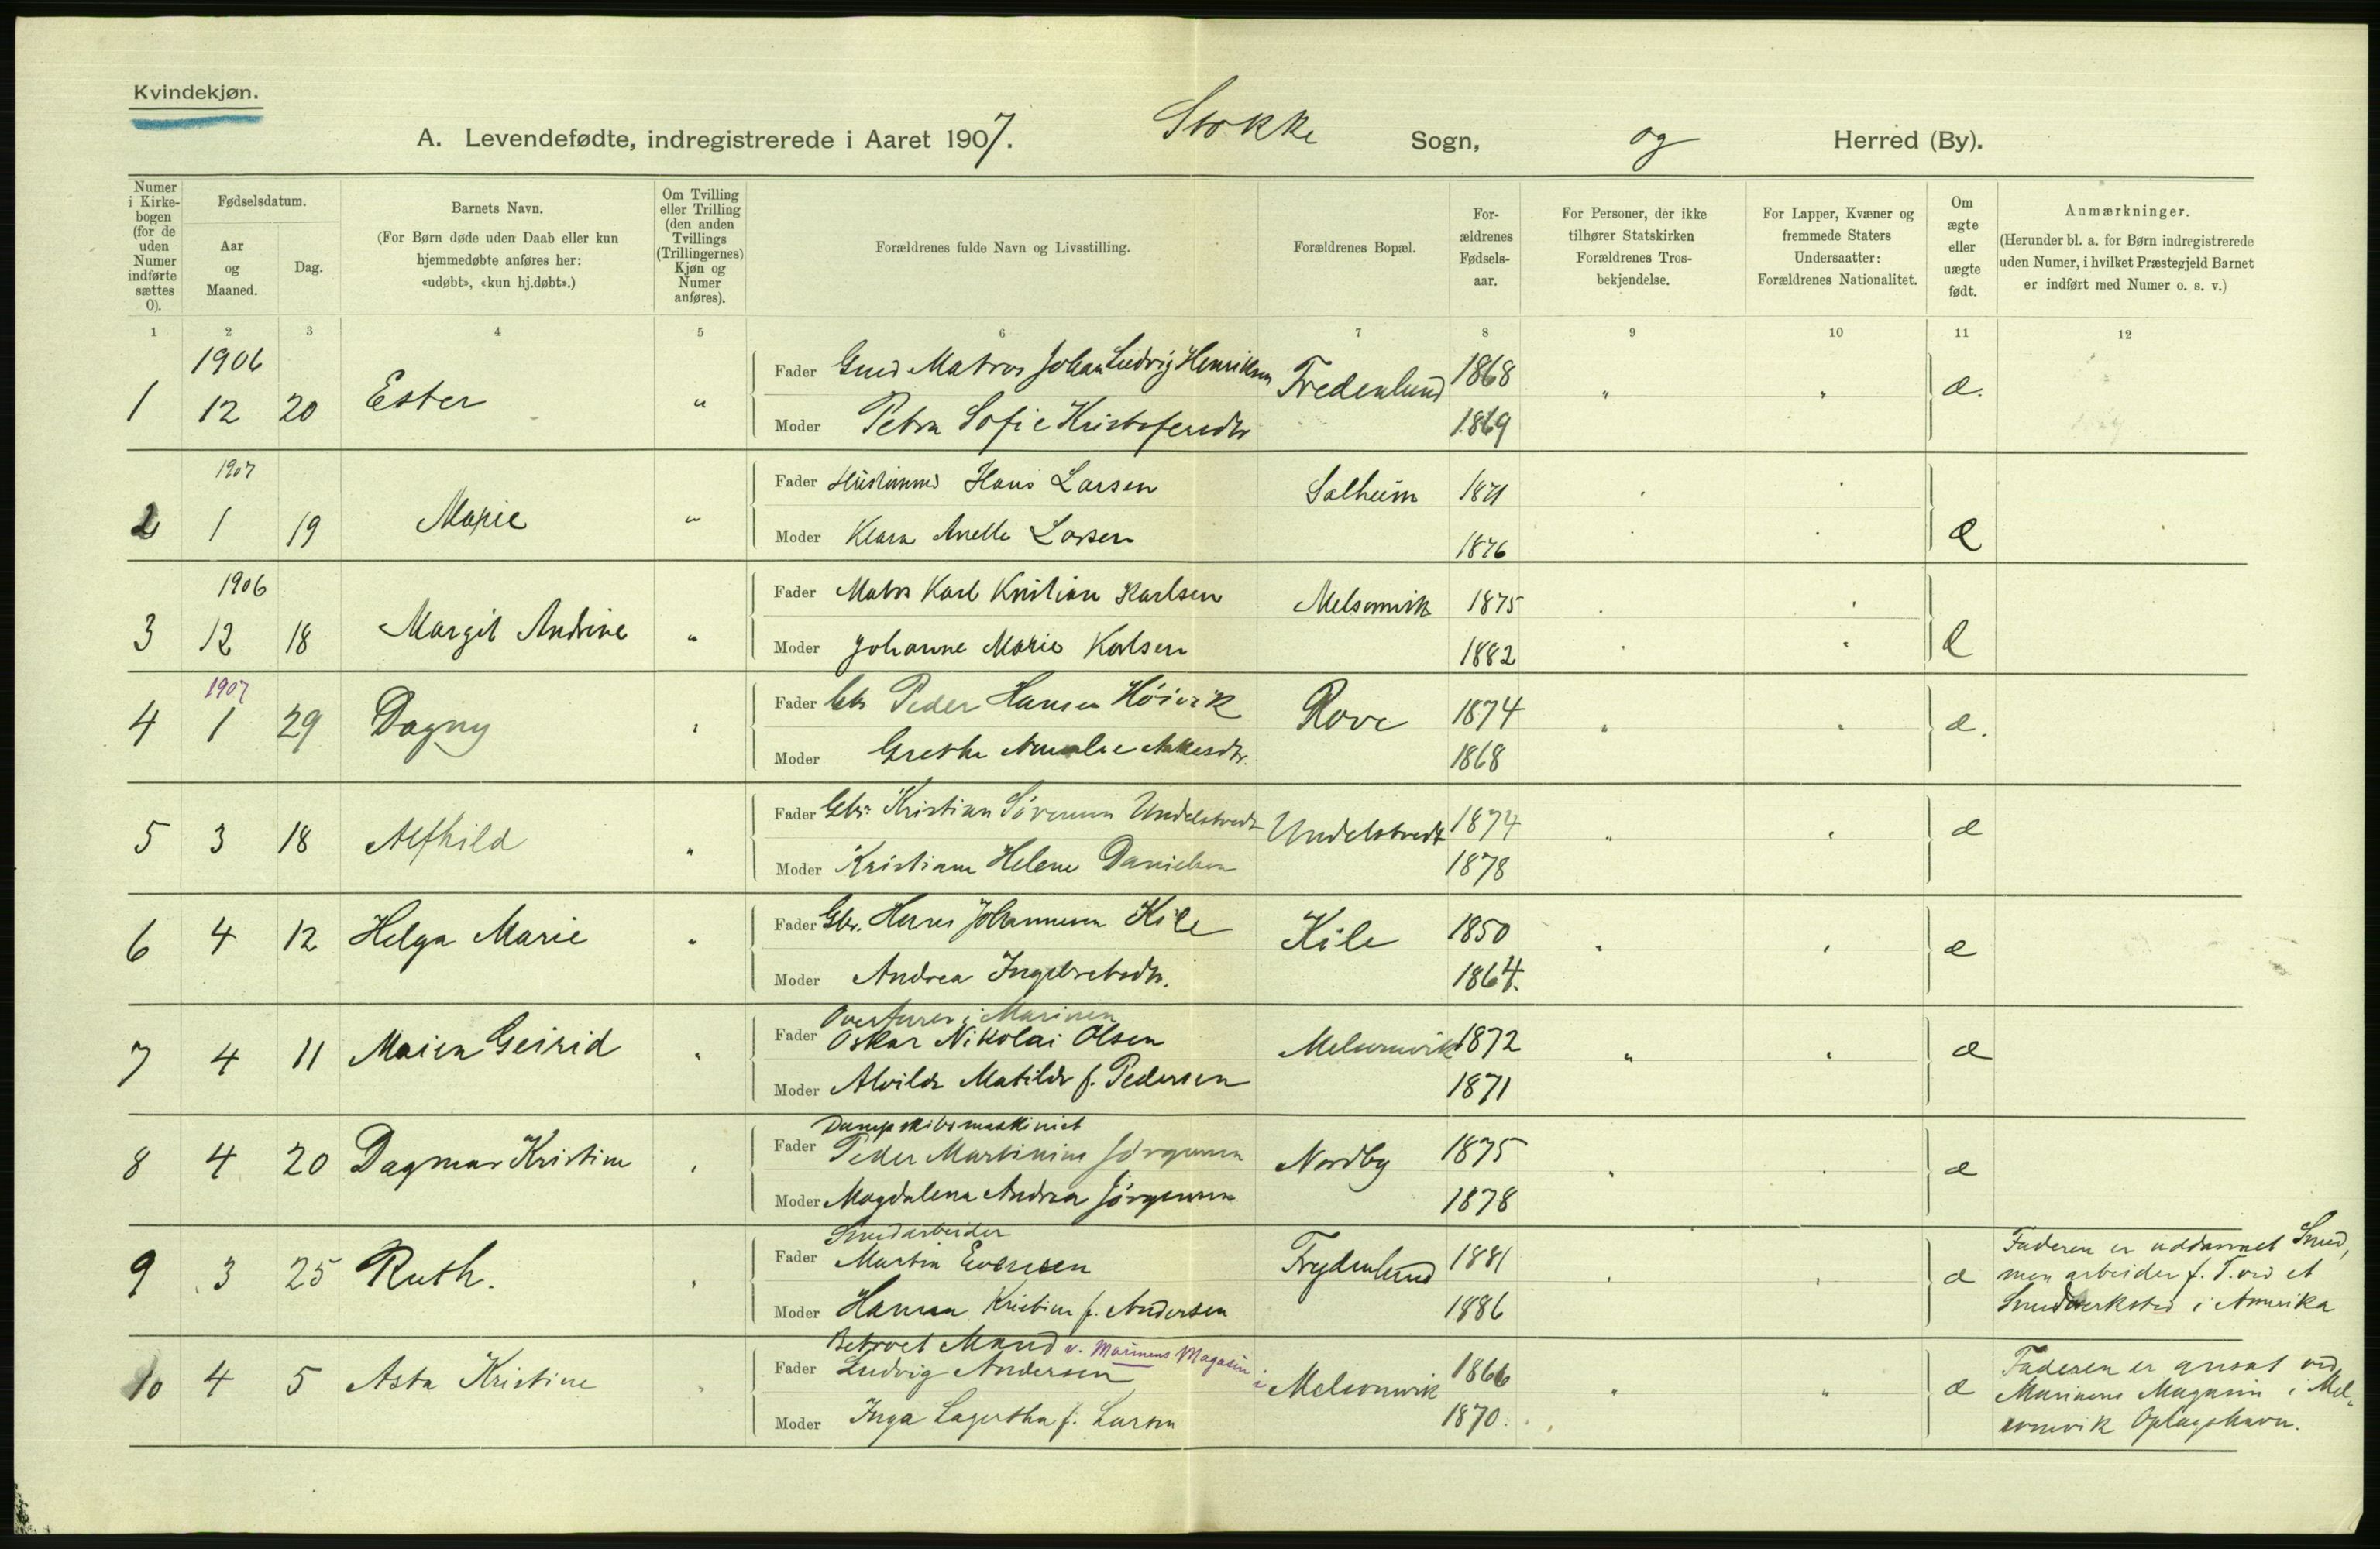 Kvindekjøn.
A. Levendefødte, indregistrerede i Aaret 1907. Stokke Sogn, og Herred (By).
Numer i Kirkebogen (for de uden Numer indførte sættes 0).
Fødselsdatum.
Aar og Maaned.
Dag.
Barnets Navn.
(For Børn døde uden Daab eller kun hjemmedøbte anføres her: «udøbt», «kun hj.døbt».)
Om Tvilling eller Trilling (den anden Tvillings (Trillingernes) Kjøn og Numer anføres).
Forældrenes fulde Navn og Livsstilling.
Forældrenes Bopæl.
Forældrenes Fødselsaar.
For Personer, der ikke tilhører Statskirken Forældrenes Trosbekjendelse.
For Lapper, Kvæner og fremmede Staters Undersaatter: Forældrenes Nationalitet.
Om ægte eller uægte født.
Anmærkninger.
(Herunder bl. a. for Børn indregistrerede uden Numer, i hvilket Præstegjeld Barnet er indført med Numer o. s. v.)
1 2 3 4 5 6 7 8 9 10 11 12
1906
1 12 20 Ester " Fader Matros Johan Ludvig Henriksen Fredenlund 1868 " " æ.
Moder Petra Sofie Kristofersdtr 1869
1907
2 1 19 Marie " Fader Hans Larsen Solheim 1871
Moder Klara Anette Larsen 1876 æ
1906
3 12 18 Margit Andrine " Fader Matros Karl Kristian Karlsen Melsomvik 1875
Moder Johanne Marie Karlsen 1882 æ
1907
4 1 29 Dagny " Fader Gbr Peder Hansen Høivik Rove 1874 " " æ.
Moder Grethe 1868
5 3 18 Alfhild " Fader Gbr. Kristian Sørensen Undelstvedt Undelstvedt 1874 " " æ
Moder Kristiane Helene Danielsen 1878
6 4 12 Helga Marie " Fader Gbr. Hans Johannesen Kile Kile 1850 " " æ
Moder Andrea Ingebretsdtr. 1864.
i Marinen
7 4 11 Maien Geirid " Fader Oskar Nikolai Olsen Melsomvik 1872 " " æ
Moder Alvilde Matilde f. Pedersen 1871
Dampskibsmaskinist
8 4 20 Dagmar Kristine " Fader Peder Martinius Jørgensen Nordby 1875 " " æ
Moder Magdalena Andrea Jørgensen 1878
Smedarbeider
9 3 25 Ruth. " Fader Martin Evensen Frydenlund 1881 " " æ
Moder Hanna Kristine f. Andersen 1886
Faderen er uddannet Smed,
men arbeider f. T. ved et
Smedverksted i Amerika
Betroet Mand v. Marinens Magasin i
10 4 5 Asta Kristine " Fader Ludvig Andersen Melsomvik 1866 " " æ
Moder Inga Lagertha f. Larsen 1870.
Faderen er ansat ved
Marinens Magasin i Mel-
somvik Oplagshavn.